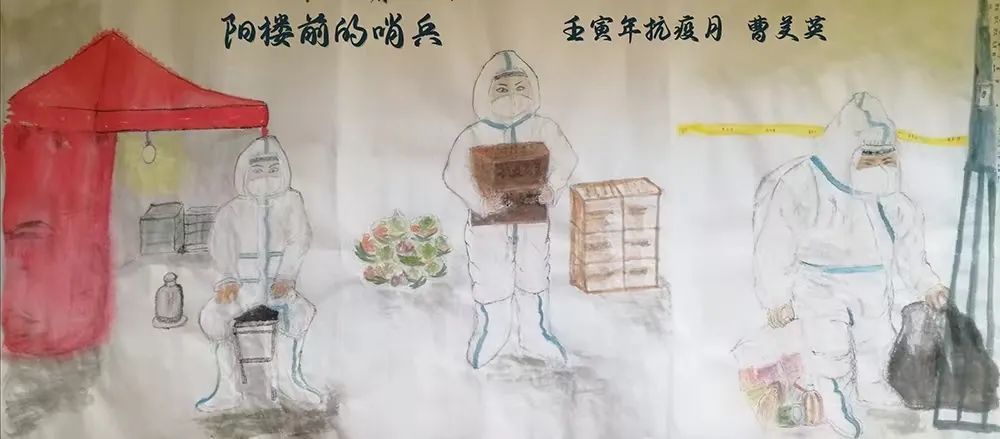 阳楼前的哨兵
壬寅年抗疫月 曹美英